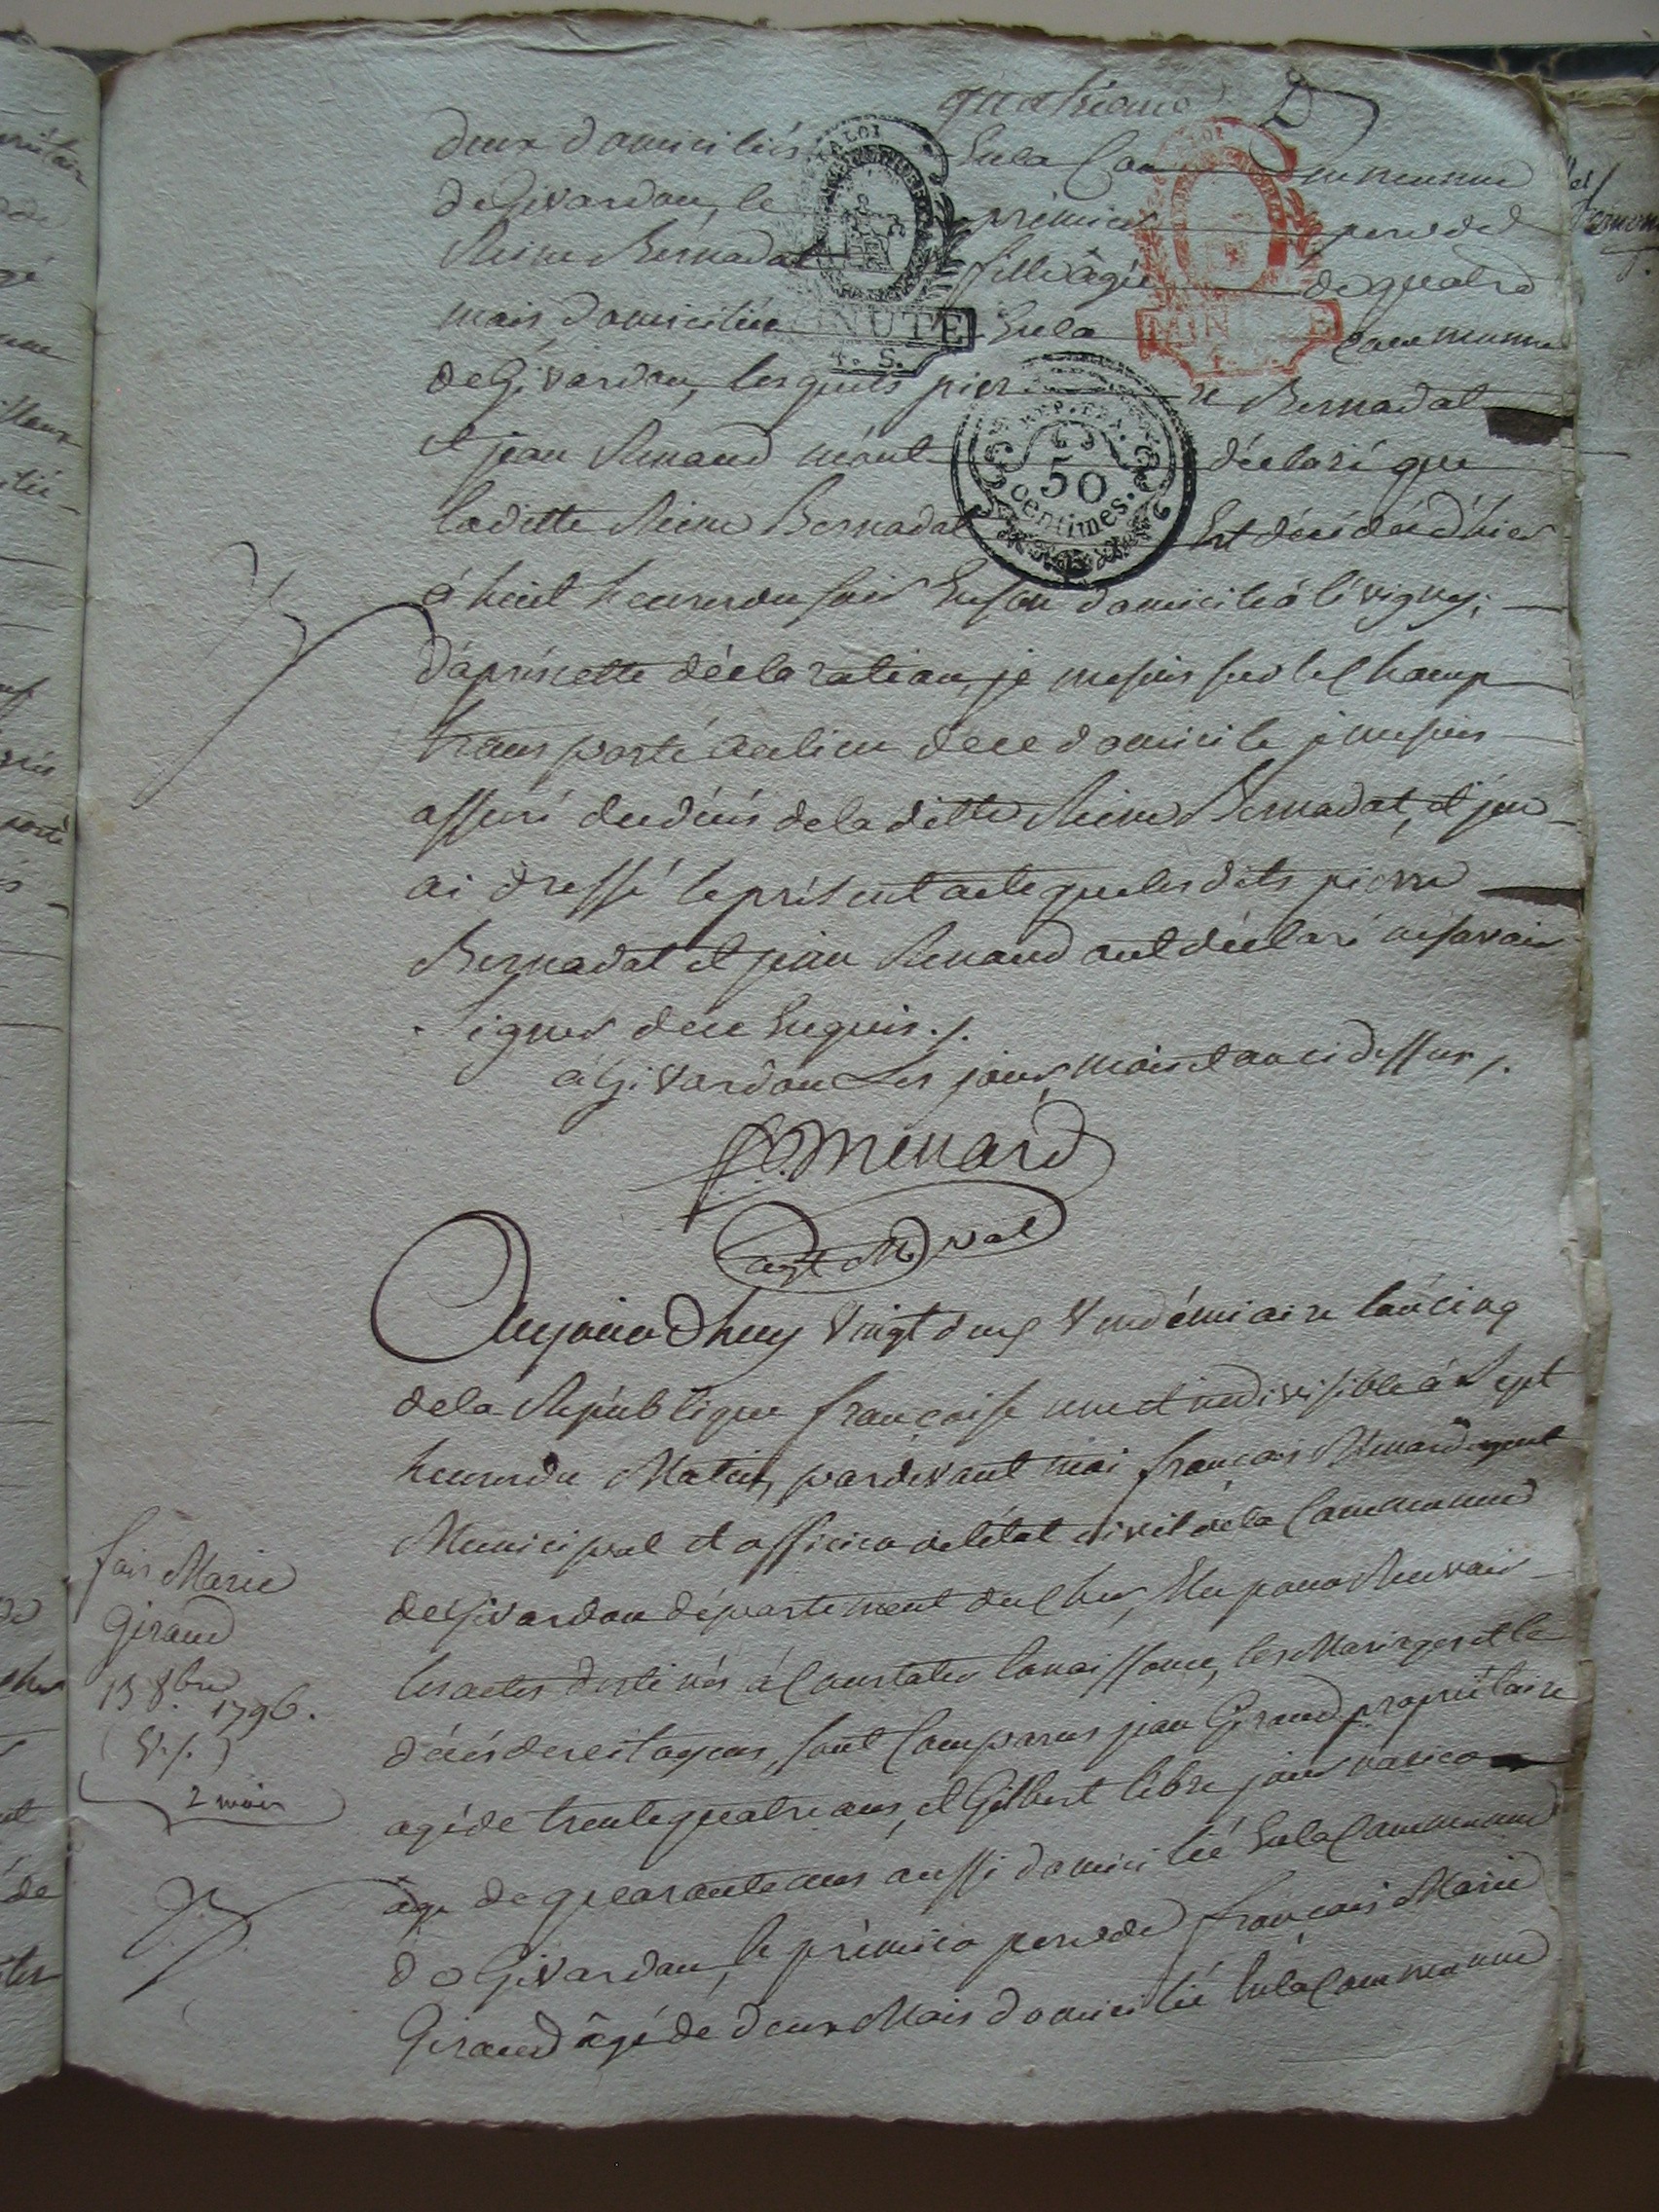 quatrieme
deux domiciliés En la Commune
de Givardon, le prémier pere de
Reine Bernadat fille âgée de quatre
mois domiciliée En la Commune
de Givardon, lesquels pierre Bernadat
et jean Renaud m'ont déclaré que
laditte Reine Bernadat Est décédée d'hier
LA LOI
MINUTE
4. S.
LOI
MINUTE
REP. FRA.
50
centimes.
à huit heures du soir En son domicile à lévigny;
d'après cette déclaration, je me suis sur le Champ
transporté au lieu de ce domicile je me suis
assuré du décés de la ditte Reine Bernadat, et j'en
ai dressé le présent acte que les dits pierre
Bernadat et jean Renaud ont déclaré ne savoir
signer de ce Enquis ./.
à Givardon Les jour, mois et an ci dessus ./.
f. Menard
agt Mpal
Aujourd'huy vingt deux vendémiaire l'an cinq
de la République françoise une et indivisible à Sept
heures du Matin, pardevant moi françois Menard agent
Municipal et officier de l'état civil de la Commune
de Givardon département du Cher, Elu pour Recevoir
les actes destinés à Constater la naissance, les Mariages et le
décés des citoyens, sont Comparus jean Giraud propriétaire
agé de trente quatre ans, et Gilbert lebre journarier
âgé de quarante ans aussi domicilié En la Commune
de Givardon, le prémier pere de françois Marie
Giraud âgé de deux Mois domicilié En la Commune
fois Marie
Giraud
13 8bre
1796.
(V.s.)
2 mois